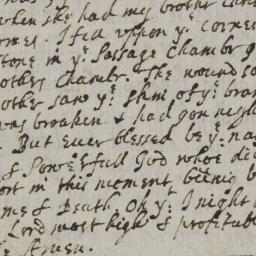 when she had my brother
I fell uppon yᵉ corner
stone in yᵉ Passage Chamber
others Chamber. The wound so
other saw yᵉ skin of yᵉ bran
was broaken & had gon nigh
But ever blessed be yᵉ na
& Powerfull God whoe di
ort in this moment being b
me of Death. Oh yᵗ I might
Lord most high & profitab
Amen.